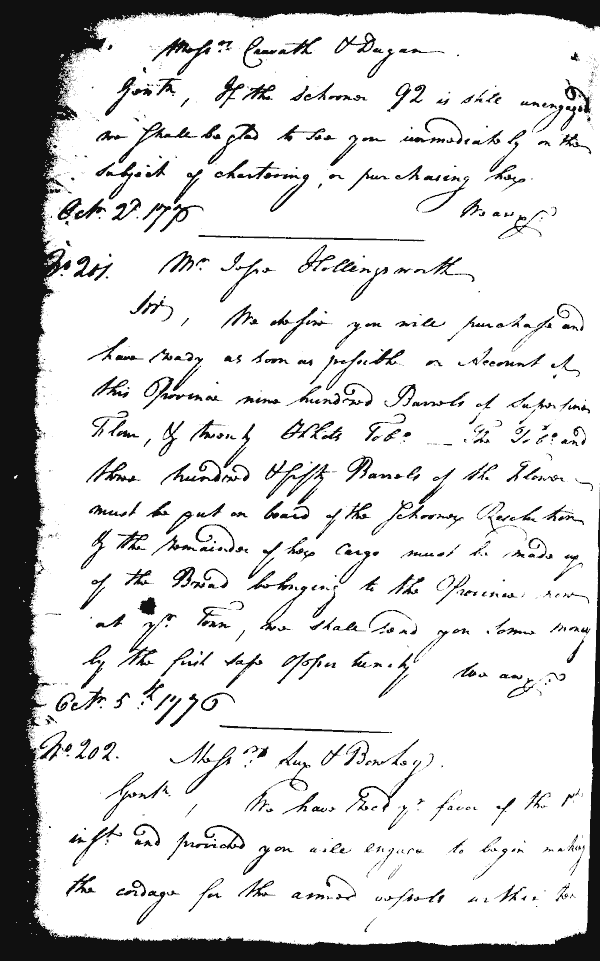 Messrs. Crawath & Dugan.
Gentn, If the Schooner 92 is still unengaged
we shall be glad to see you immediately on the
subject of chartering, or purchasing her.
Octr. 2d. 1776 We are &c.
No. 201. Mr. Jesse Hollingsworth
Sir, We desire you will purchase and
have ready as soon as possible on Account of
this Province nine hundred Barrels of superfine
Flour, & twenty Hhds Tobo. — The Tobo. and
three hundred & fifty Barrels of the Flower
must be put on board of the Schooner Resolution
& the remainder of her cargo must be made up
of the Bread belonging to the Province now
at yr. Town, we shall send you some money
by the first safe opportunity We are &c.
Octr. 5th. 1776
No. 202. Messrs. Lux & Bowley.
Gentn, We have Recd yr. favor of the 1st
inst. and provided you will engage to begin making
the cordage for the armed vessels within ten